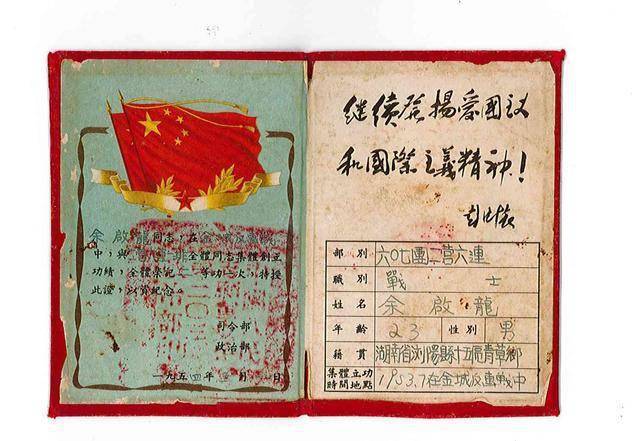 余啟龍同志，在金城反擊戰
中，與排全體同志集體創立
功績，全體榮記二等功一次，特授
此證，以資紀念
司令部
政治部
一九五四年月日
继续發揚爱國主义
和國際主義精神！
彭德懷
部別 六〇七團二營六連
職別 戰士
姓名 余啟龍
年齡 23 性別 男
籍貫 湖南省浏陽縣十五區青草鄉
集體立功
時間地點 1953.7在金城反擊戰中